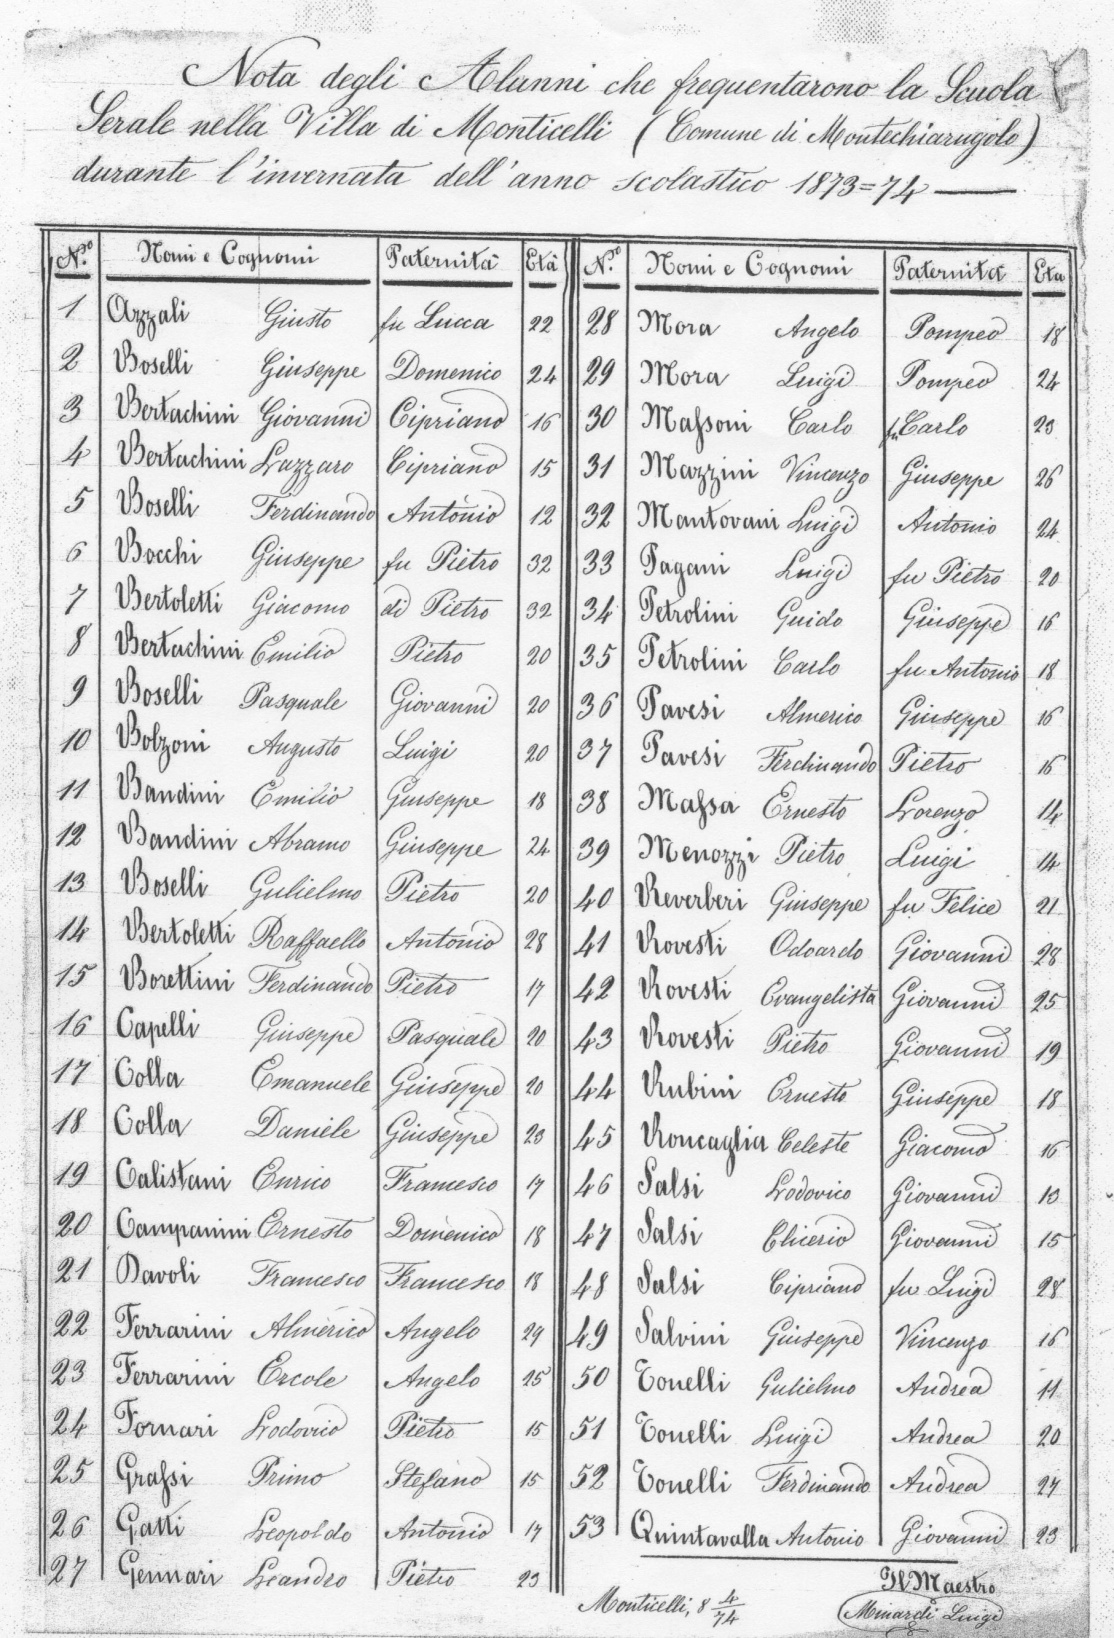 Nota degli Alunni che frequentarono la Scuola
Serale nella Villa di Monticelli (Comune di Montechiarugolo)
durante l'invernata dell'anno scolastico 1873=74
N.º Nomi e Cognomi Paternità Età
1 Azzali Giusto fu Lucca 22
2 Boselli Giuseppe Domenico 24
3 Bertachini Giovanni Cipriano 16
4 Bertachini Lazzaro Cipriano 15
5 Boselli Ferdinando Antonio 12
6 Bocchi Giuseppe fu Pietro 32
7 Bertoletti Giacomo di Pietro 32
8 Bertachini Emilio Pietro 20
9 Boselli Pasquale Giovanni 20
10 Bolzoni Augusto Luigi 20
11 Bandini Emilio Giuseppe 18
12 Bandini Abramo Giuseppe 24
13 Boselli Gulielmo Pietro 20
14 Bertoletti Raffaello Antonio 28
15 Borettini Ferdinando Pietro 17
16 Capelli Giuseppe Pasquale 20
17 Colla Emanuele Giuseppe 20
18 Colla Daniele Giuseppe 23
19 Calistani Enrico Francesco 17
20 Campanini Ernesto Domenico 18
21 Davoli Francesco Francesco 18
22 Ferrarini Almerico Angelo 29
23 Ferrarini Ercole Angelo 25
24 Fornari Lodovico Pietro 15
25 Grassi Primo Stefano 15
26 Gatti Leopoldo Antonio 17
27 Gennari Leandro Pietro 23
N.º Nomi e Cognomi Paternità Età
28 Mora Angelo Pompeo 18
29 Mora Luigi Pompeo 24
30 Massoni Carlo fu Carlo 23
31 Mazzini Vincenzo Giuseppe 26
32 Mantovani Luigi Antonio 24
33 Pagani Luigi fu Pietro 20
34 Petrolini Guido Giuseppe 16
35 Petrolini Carlo fu Antonio 18
36 Pavesi Almerico Giuseppe 16
37 Pavesi Ferdinando Pietro 16
38 Massa Ernesto Lorenzo 14
39 Menozzi Pietro Luigi 14
40 Reverberi Giuseppe fu Felice 21
41 Rovesti Odoardo Giovanni 28
42 Rovesti Evangelista Giovanni 25
43 Rovesti Pietro Giovanni 19
44 Rubini Ernesto Giuseppe 18
45 Roncaglia Celeste Giacomo 16
46 Salsi Lodovico Giovanni 13
47 Salsi Clicerio Giovanni 15
48 Salsi Cipriano fu Luigi 28
49 Salvini Giuseppe Vincenzo 16
50 Tonelli Gulielmo Andrea 11
51 Tonelli Luigi Andrea 20
52 Tonelli Ferdinando Andrea 27
53 Quintavalla Antonio Giovanni 23
Il Maestro
Monticelli, 8 4/74
Minardi Luigi